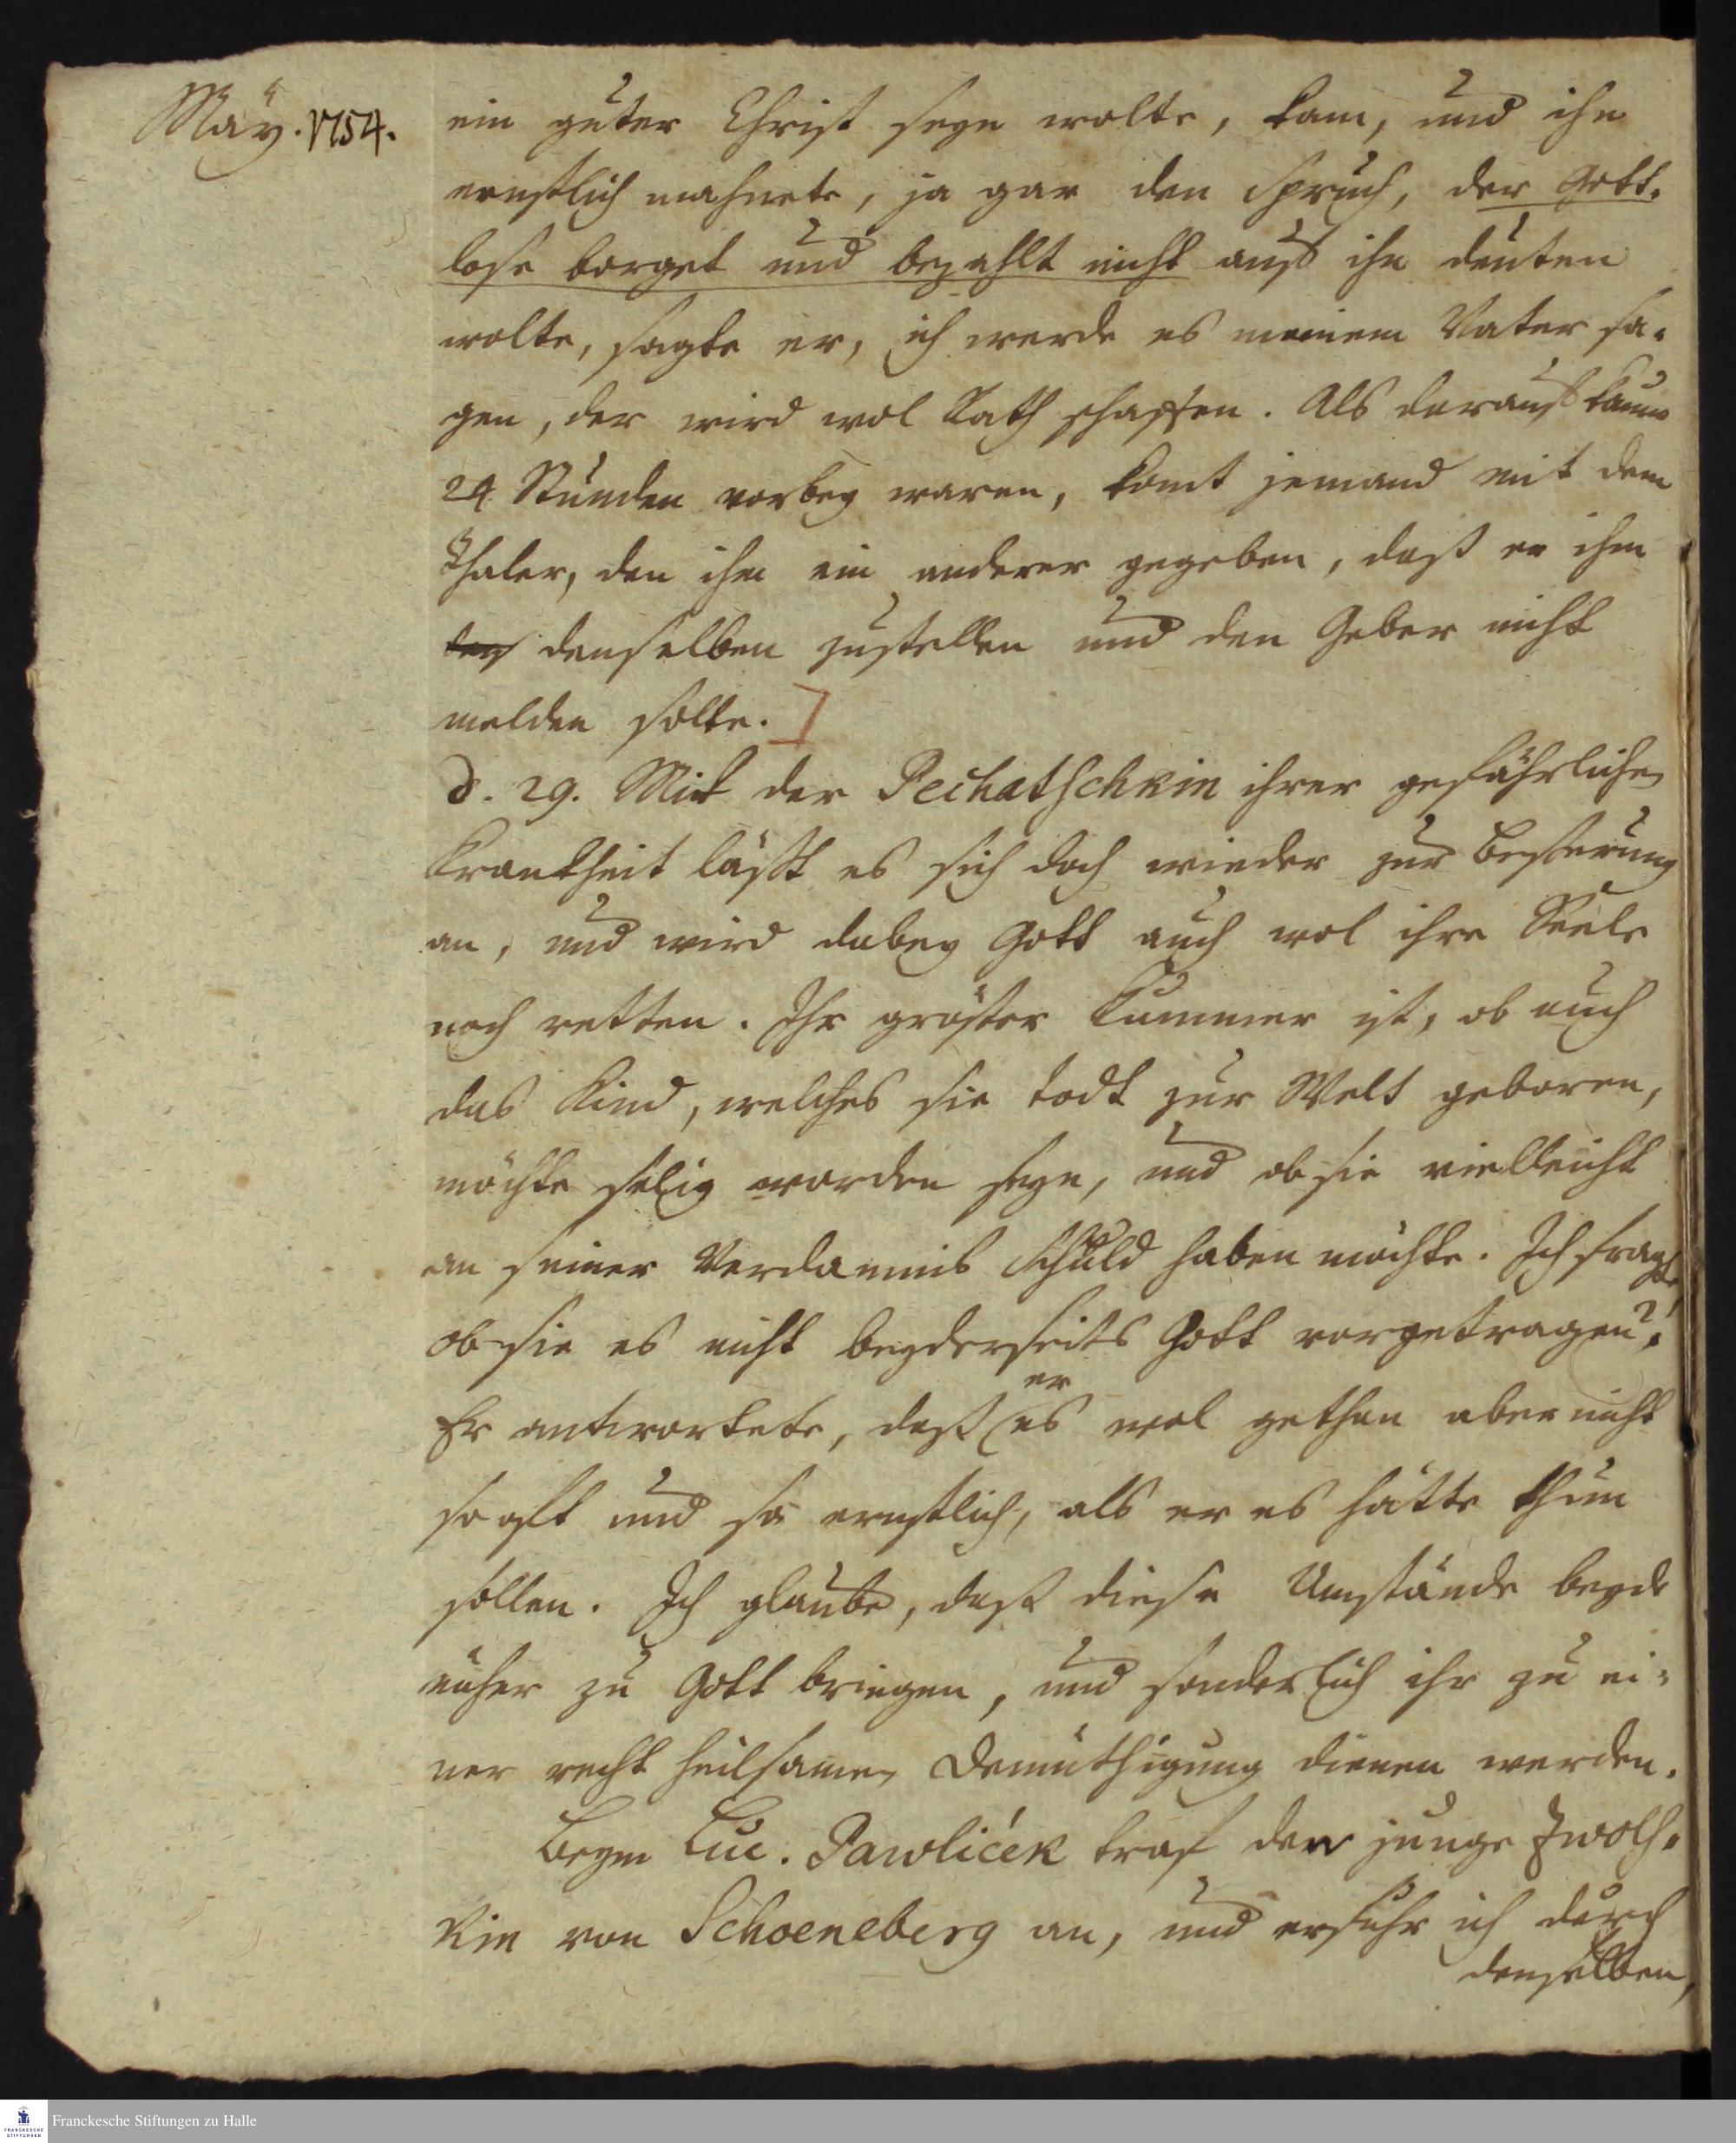 Mäy. 1754.
ein guter Christ seyn wolte, kam, und ihn
ernstlich mahnete, ja gar den Spruch, der Gott-
lose borget und bezahlt nicht auf ihn deuten
wolte, sagte er, ich werde es meinem Vater sa-
gen, der wird wol Rath schaffen. Als darauf kaum
24 Stunden vorbey waren, komt jemand mit dem
Thaler, den ihm ein anderer gegeben, daß er ihm
denselben zustellen und den Geber nicht
melden solte. ]
d. 29. Mit der Pechatschkin ihrer gefährlichen
Krankheit läßt es sich doch wieder zur Beßerung
an, und wird dabey Gott auch wol ihre Seele
noch retten. Ihr gröster Kummer ist, ob auch
das Kind, welches sie todt zur Welt geboren,
möchte selig worden seyn, und ob sie vielleicht
an seiner Verdamnis Schuld haben möchte. Ich fragte
ob sie es nicht beyderseits Gott vorgetragen?
Er antwortete, daß er es wol gethan aber nicht
so oft und so ernstlich, als er es hätte thun
sollen. Ich glaube, daß diese Umstände beyde
näher zu Gott bringen, und sonderlich ihr zu ei-
ner recht heilsamen Demüthigung dienen werden.
Beym Luc. Pawlićek traf den junge Zwolsh-
kin von Schoeneberg an, und erfuhr ich durch
denselben,
Franckesche Stiftungen zu Halle
FRANCKESCHE
STIFTUNGEN